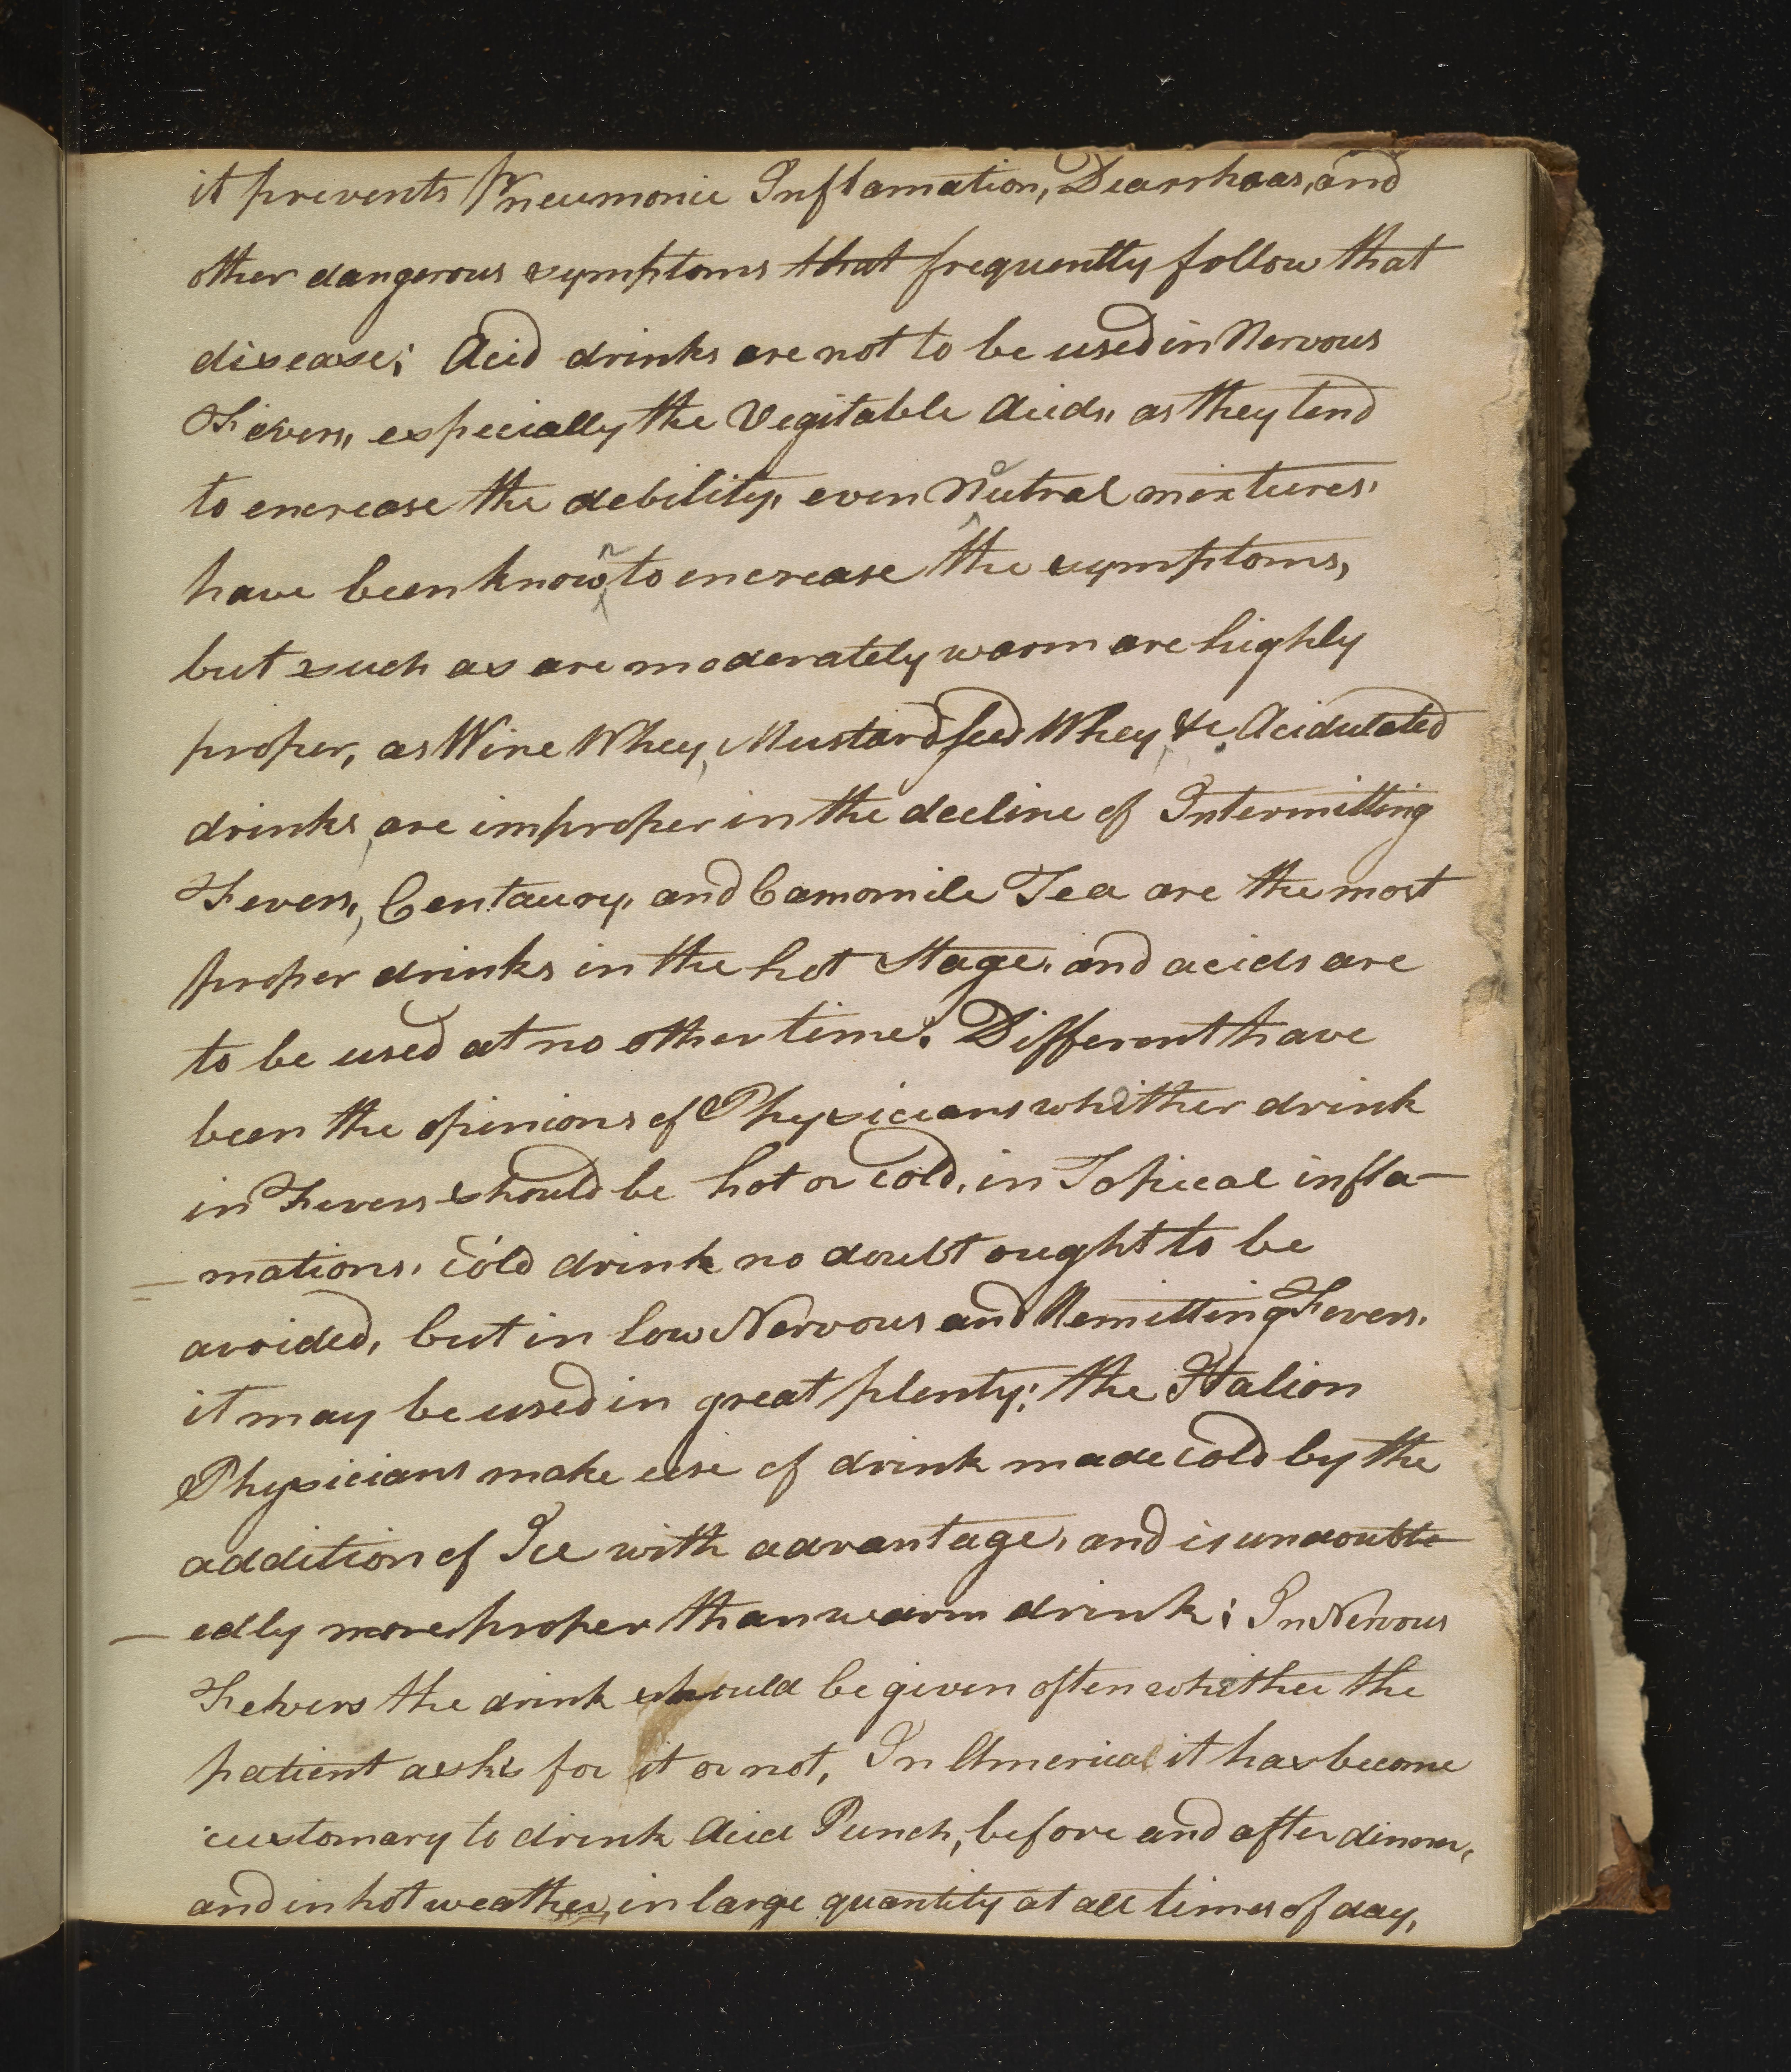 it prevents Pneumonic Inflamation, Dearrhaas, and
other dangerous symptoms that frequently follow that
disease; Acid drinks are not to be used in Nervous
Fevers, especially the Vegitable Acids, as they tend
to encrease the debility, even Neutral mixtures,
have been known to encrease the symptoms,
but such as are moderately warm are highly
proper, as Wine Whey, Mustardseed Whey, &c. Acidulated
drinks, are improper in the decline of Intermitting
Fevers, Centaury, and Camomile Tea are the most
proper drinks in the hot Stage, and acids are
to be used at no other time. Different have
been the opinions of Physicians whither drink
in Fevers should be hot or cold, in Topical infla-
-mations, cold drink no doubt ought to be
avoided, but in low Nervous and Remitting Fevers,
it may be used in great plenty; the Italion
Physicians make use of drink made cold by the
addition of Ice with advantage, and is undoubte
-edly more proper than warm drink; In Nervous
Fevers the drink should be given often whither the
patient asks for it or not, In America it has become
customary to drink Acid Punch, before and after dinner,
and in hot weather, in large quantity at all times of day,